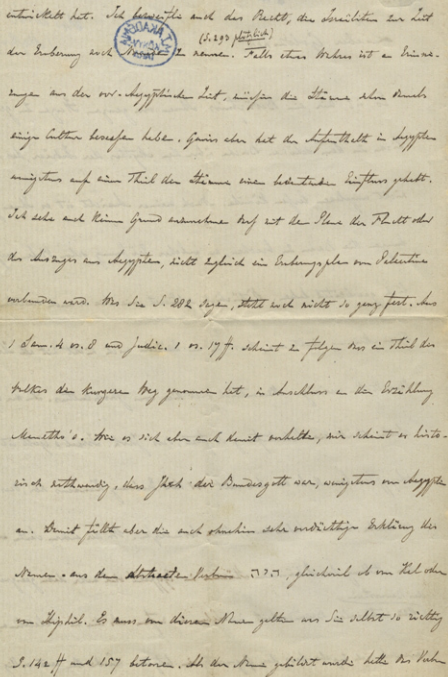 entwickelt hat. Ich bezweifle auch das Recht, die Israeliten zur Zeit
(S. 293 plötzlich)
der Eroberung noch zu nennen. Falls etwas Wahres ist an Erinne-
rungen aus der vor-Aegyptischen Zeit, müssen die Stämme schon damals
einige Cultur besessen haben. Gewiss aber hat der Aufenthalt in Aegypten
wenigstens auf einen Theil der Stämme einen bedeutenden Einfluss gehabt.
Ich sehe auch keinen Grund anzunehmen dass mit dem Plane der Flucht oder
des Auszuges aus Aegypten, nicht zugleich ein Eroberungsplan von Palestina
verbunden ward. Was Sie S. 282 sagen, steht noch nicht so ganz fest. Aus
1 Sam. 4 vs. 8 und Judic. 1 vs. 17 ff. scheint zu folgen dass ein Theil des
Volkes den kurzeren Weg genommen hat, in Anschluss an die Erzählung
Manetho's. Wie es sich aber auch damit verhalte, mir scheint es histo-
risch nothwendig, dass Jhvh der Bundesgott war, wenigstens von Aegypten
an. Damit fällt aber die auch ohnehin sehr verdächtige Erklärung des
Namens aus dem abstracten Verbum היה, gleichviel ob vom Kal oder
vom Hiphil. Es muss von diesem Namen gelten was Sie selbst so richtig
S. 142 ff und 157 betonen. Als der Name gebildet wurde hatte das Verbum